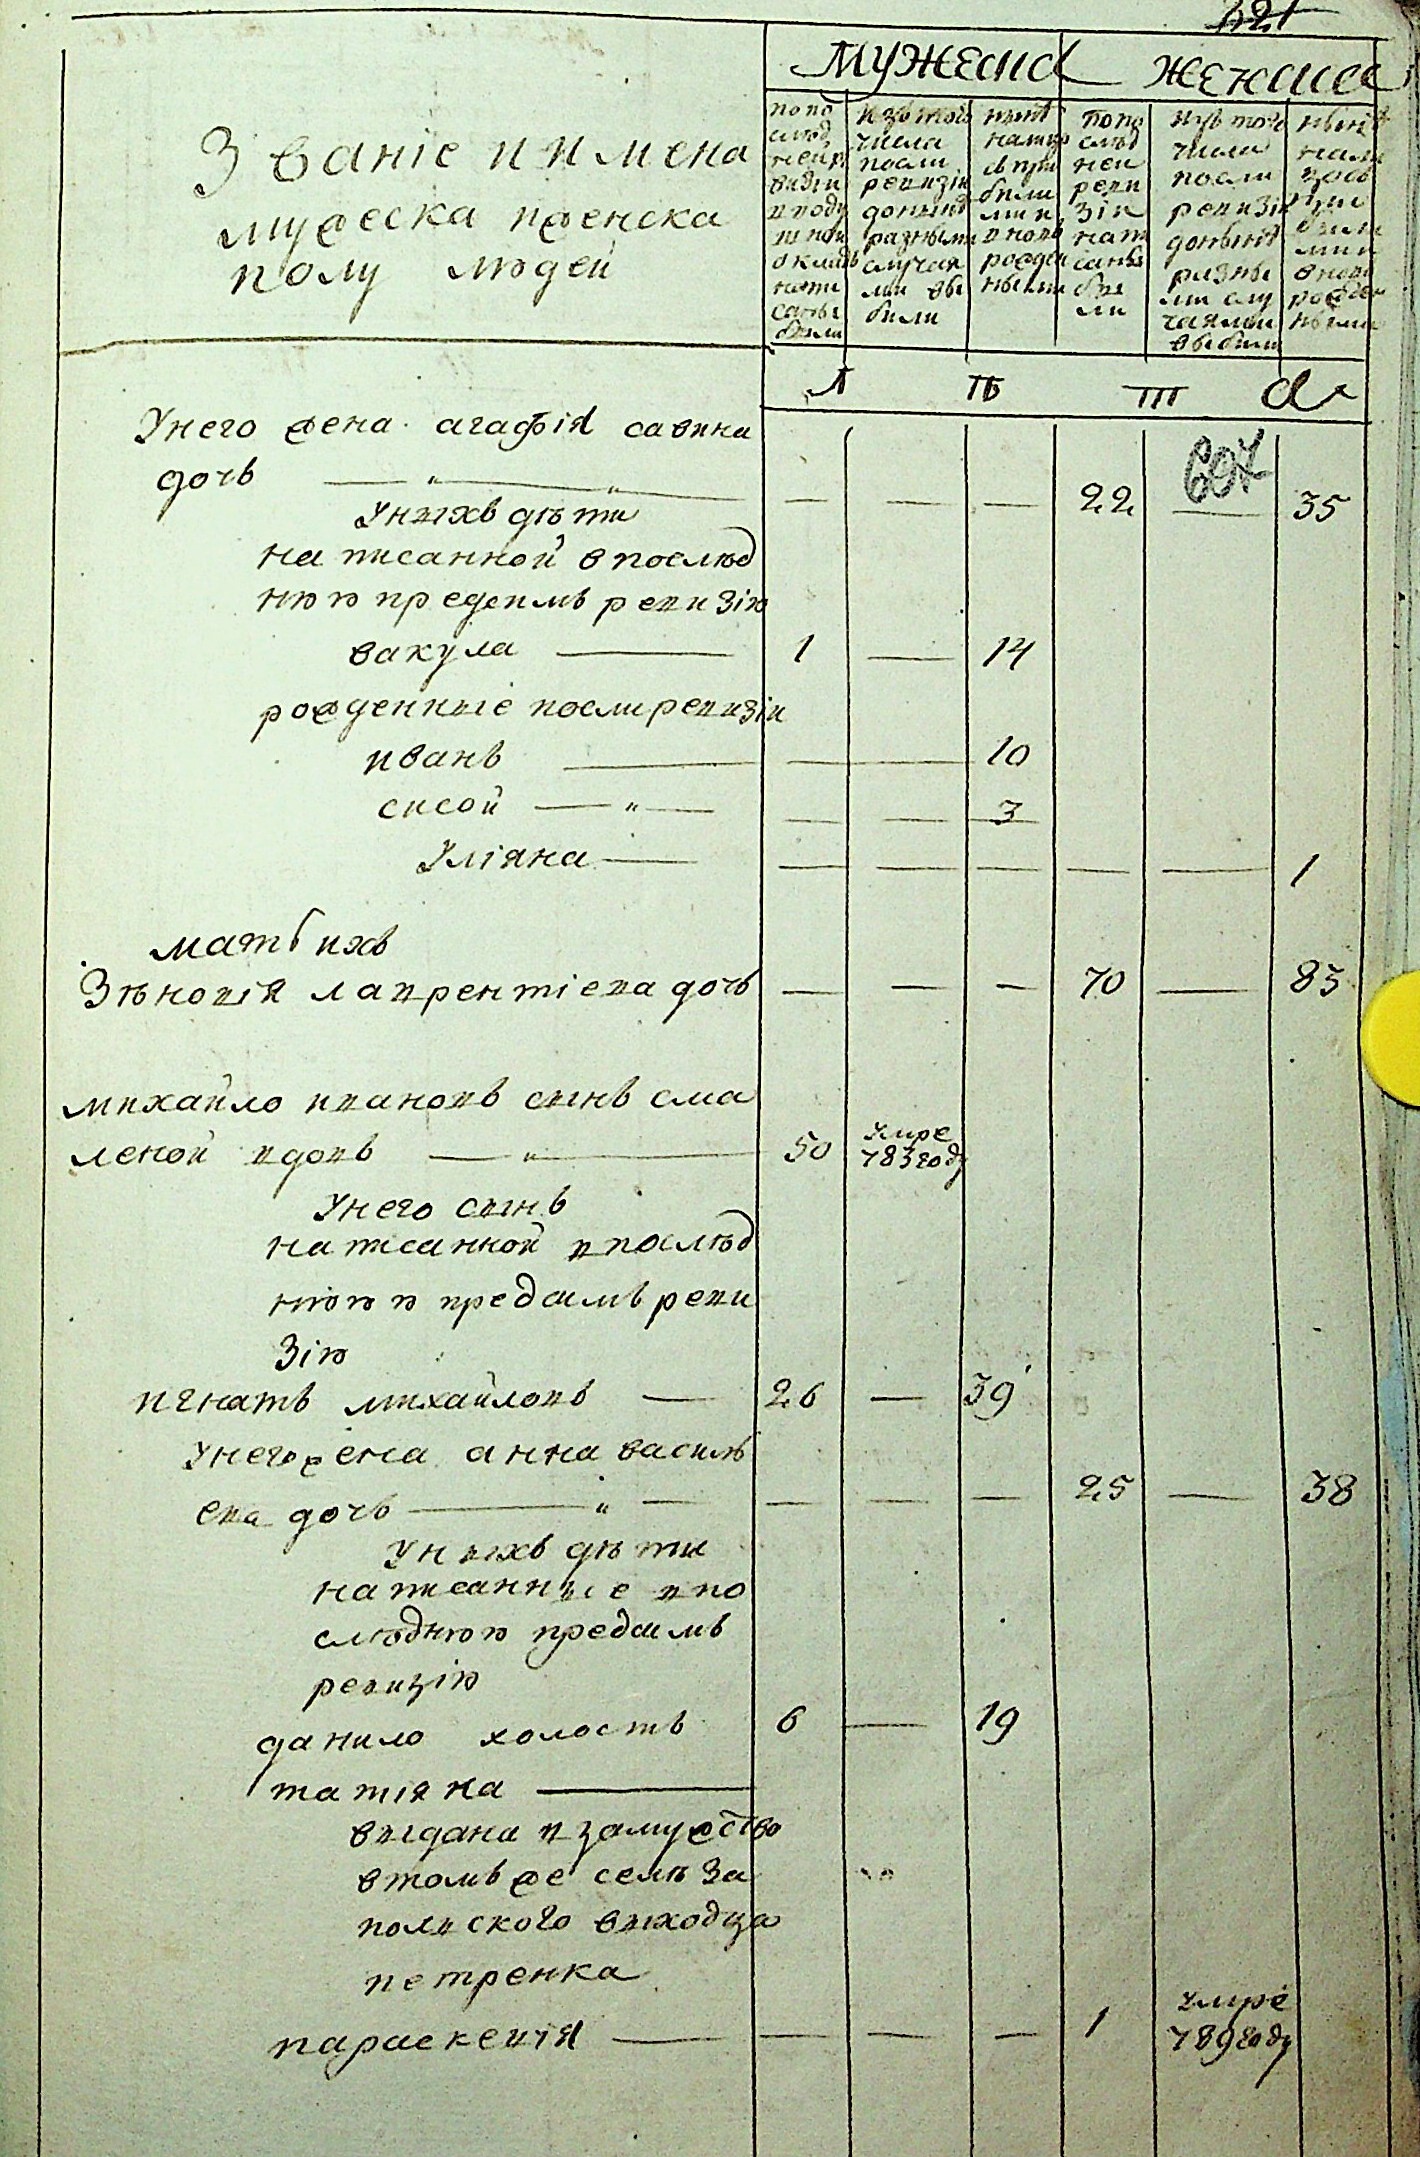 621
мужеска женска
Званіе и имена
мужеска и женска
полу людей
по по
след
ней ре
визіи
в поду
шной
окладъ
напи
саны
были
изъ того
числа
посли
ревизіи
доныне
разными
случая
ми вы
были
ныне
на лицо
съ при
были
ми и
вново
рожден
ными
по по
след
ней
реви
зіи
напи
саны
бы
ли
изъ того
числа
посли
ревизіи
доныне
разны
ми слу
чаями
выбыли
ныне
нали
цо съ
при
были
ми и
вново
рожден
ными
Унего жена агафія савина
дочь — „ — „ — — — — 22 — 35
607
Унихъ дѣти
написанной в послѣд
нюю предсимъ ревизію
вакула — 1 — 14
рожденные посли ревизіи
иванъ — — — 10
сисой — „ — — — 3
Уліяна — — — — — — 1
мать ихъ
Зѣновія лаврентіева дочь — — — 70 — 83
михайло ивановъ сынъ сма
леной вдовъ — „ — 50 умре
783 году
Унего сынъ
написанной в послѣд
нюю предсимъ реви
зію
игнатъ михайловъ — 26 — 39
Унего жена анна василѣ
ева дочь — „ — — — — 25 — 38
Унихъ дѣти
написанные в по
слѣднюю предсимъ
ревизію
данило холостъ 6 — 19
татіяна —
выдана в замужство
в томъ же селѣ за
полского выходца
петренка
параскевія — — — — 1 умре
789 году